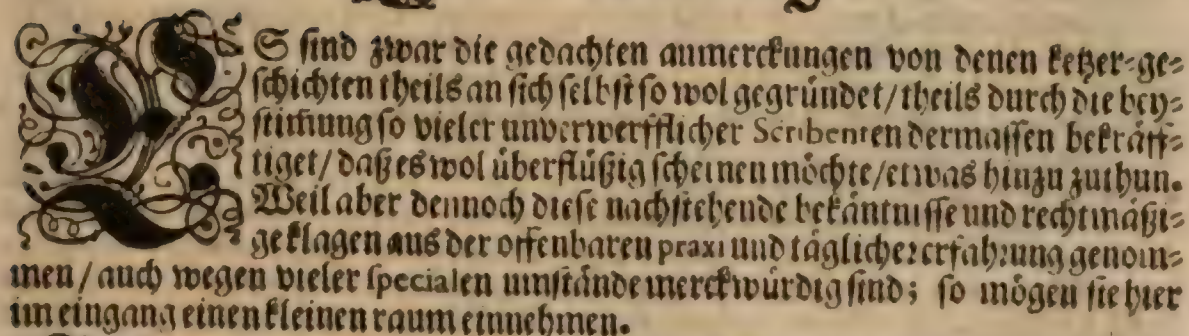 ES sind zwar die gedachten anmerckungen von denen ketzer-ge-
schichten theils an sich selbst so wol gegründet/ theils durch die bey-
stimung so vieler unverwerfflicher Scribenten dermassen bekräff-
tiget/ daß es wol überflüßig scheinen möchte/ etwas hinzu zuthun.
Weil aber dennoch diese nachstehende bekäntnisse und rechtmäßi-
ge klagen aus der offenbaren praxi und täglicher erfahrung genom-
men/ auch wegen vieler specialen umstände merckwürdig sind; so mögen sie hier
im eingang einen kleinen raum einnehmen.